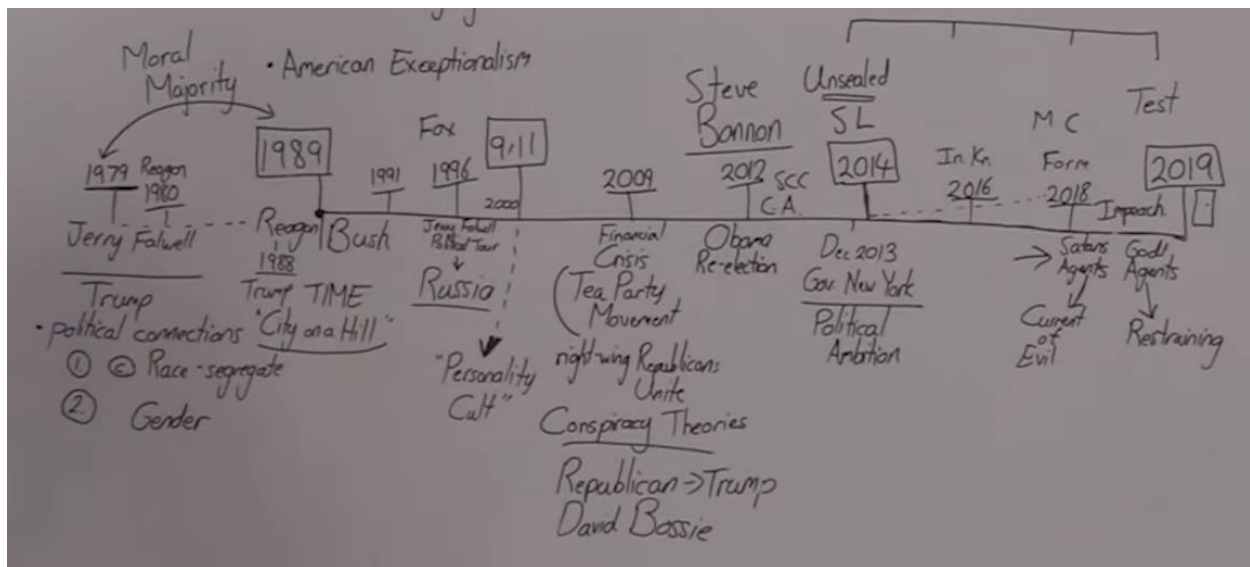 Moral
Majority
• American Exceptionalism
1979
Reagan
1980
Jerry Falwell
Trump
• political connections
① © Race-segregate
② Gender
1989
Reagan
1988
Trump
Bush
TIME
"City on a Hill"
1991
Fox
1996
Jerry Falwell
Political Tour
Russia
9,11
2000
"Personality
Cult"
2009
Financial
Crisis
Tea Party
Movement
right-wing Republicans
Unite
Conspiracy Theories
Republican → Trump
David Bossie
Steve
Bannon
2012
SCC
C.A.
Obama
Re-election
Unsealed
SL
2014
Dec 2013
Gov. New York
Political
Ambition
In. Kn.
2016
MC
Form
2018
Satans
Agents
Current
of
Evil
Test
2019
Impeach.
Gods
Agents
Restraining